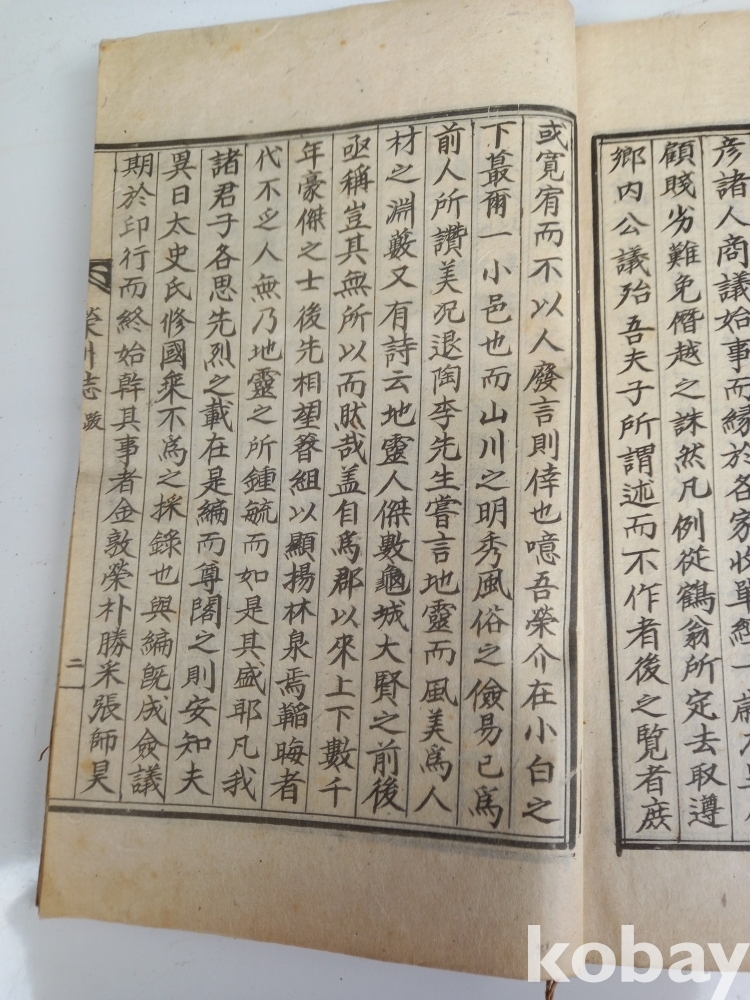 彦諸人商議始事而縁於各家收單經一歲
顧賤劣難免僭越之誅然凡例從鶴翁所定去取遵
鄉内公議殆吾夫子所謂述而不作者後之覧者庶
或寛宥而不以人廢言則倖也噫吾榮介在小白之
下蕞爾一小邑也而山川之明秀風俗之儉易已爲
前人所讚美况退陶李先生嘗言地靈而風美爲人
材之淵藪又有詩云地靈人傑數龜城大賢之前後
亟稱豈其無所以而肰哉盖自爲郡以來上下數千
年豪傑之士後先相望簪組以顯揚林泉焉韜晦者
代不乏人無乃地靈之所鍾毓而如是其盛耶凡我
諸君子各思先烈之載在是編而尊閣之則安知夫
異日太史氏修國乘不爲之採錄也與編旣成僉議
期於印行而終始幹其事者金敦榮朴勝采張師昊
榮川志 跋 二
kobay